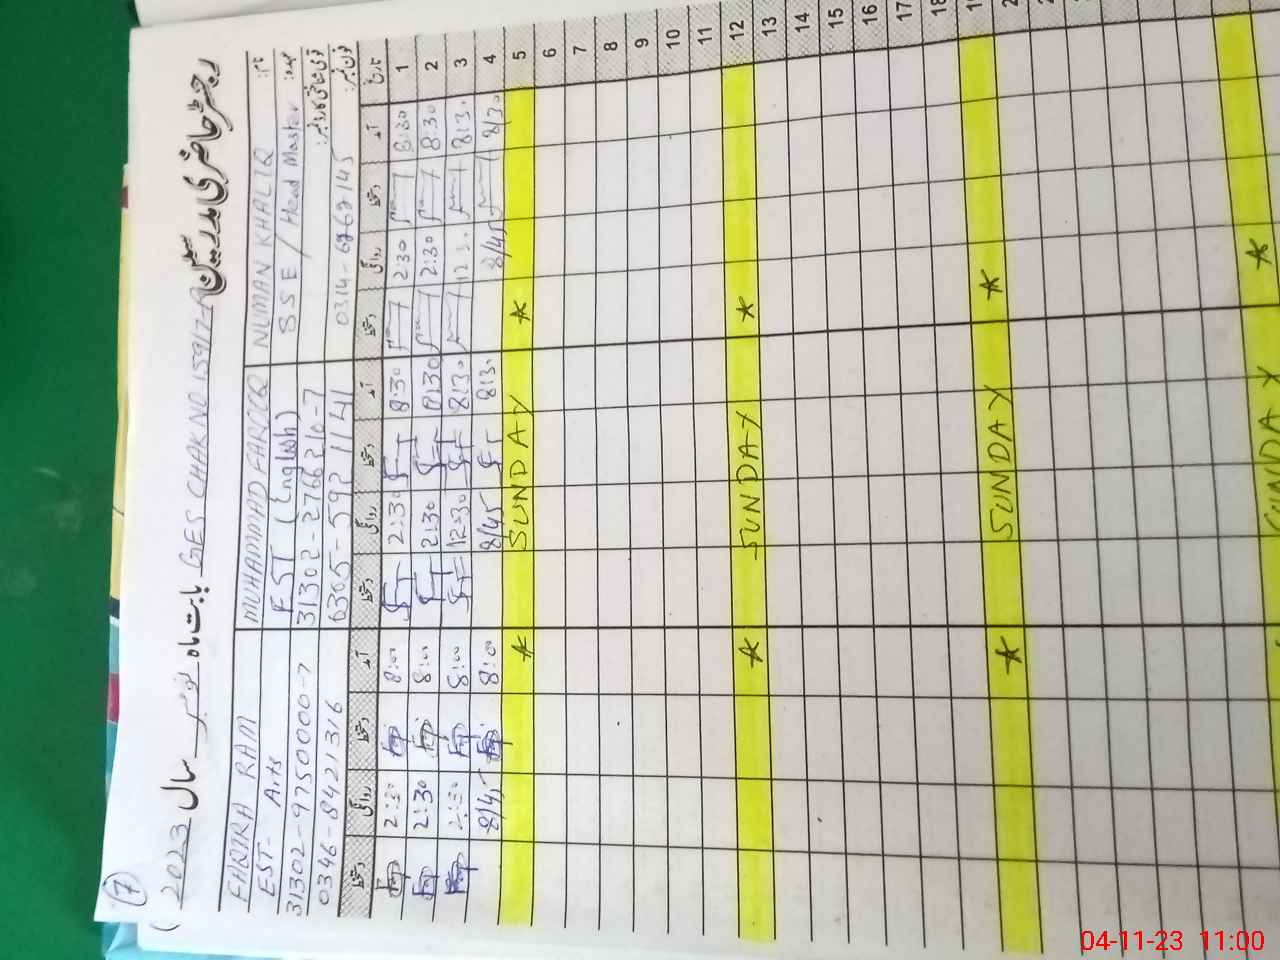 7
رجسٹر حاضری مدرسین GES CHAK NO. 159/7-R بابت ماہ نومبر سال 2023
نام: NUMAN KHALIQ MUHAMMAD FAROOQ FAQIRA RAM
عہدہ: SSE / Head Master EST (English) EST- Arts
قومی شناختی کارڈ نمبر: 31302-2766210-7 31302-9750000-7
فون نمبر: 0314-6767145 0305-5921141 0346-8421316
تاریخ آمد دستخط روانگی دستخط آمد دستخط روانگی دستخط آمد دستخط روانگی دستخط
1 8:30 2:30 8:30 2:30 8:00 2:30
2 8:30 2:30 8:30 2:30 8:00 2:30
3 8:30 12:30 8:30 12:30 8:00
4 8:30 8/45 8:30 8/45 8:00 8/45
5 * SUNDAY *
6
7
8
9
10
11
12 * SUNDAY *
13
14
15
16
17
18
19 * SUNDAY *
* SUNDAY
04-11-23 11:00